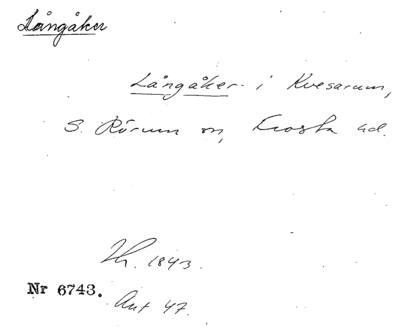 Långåker
Långåker i Kvesarum,
S. Rörum sn, Frosta hd.
Th. 1843.
Nr 6743.
Ant 47.